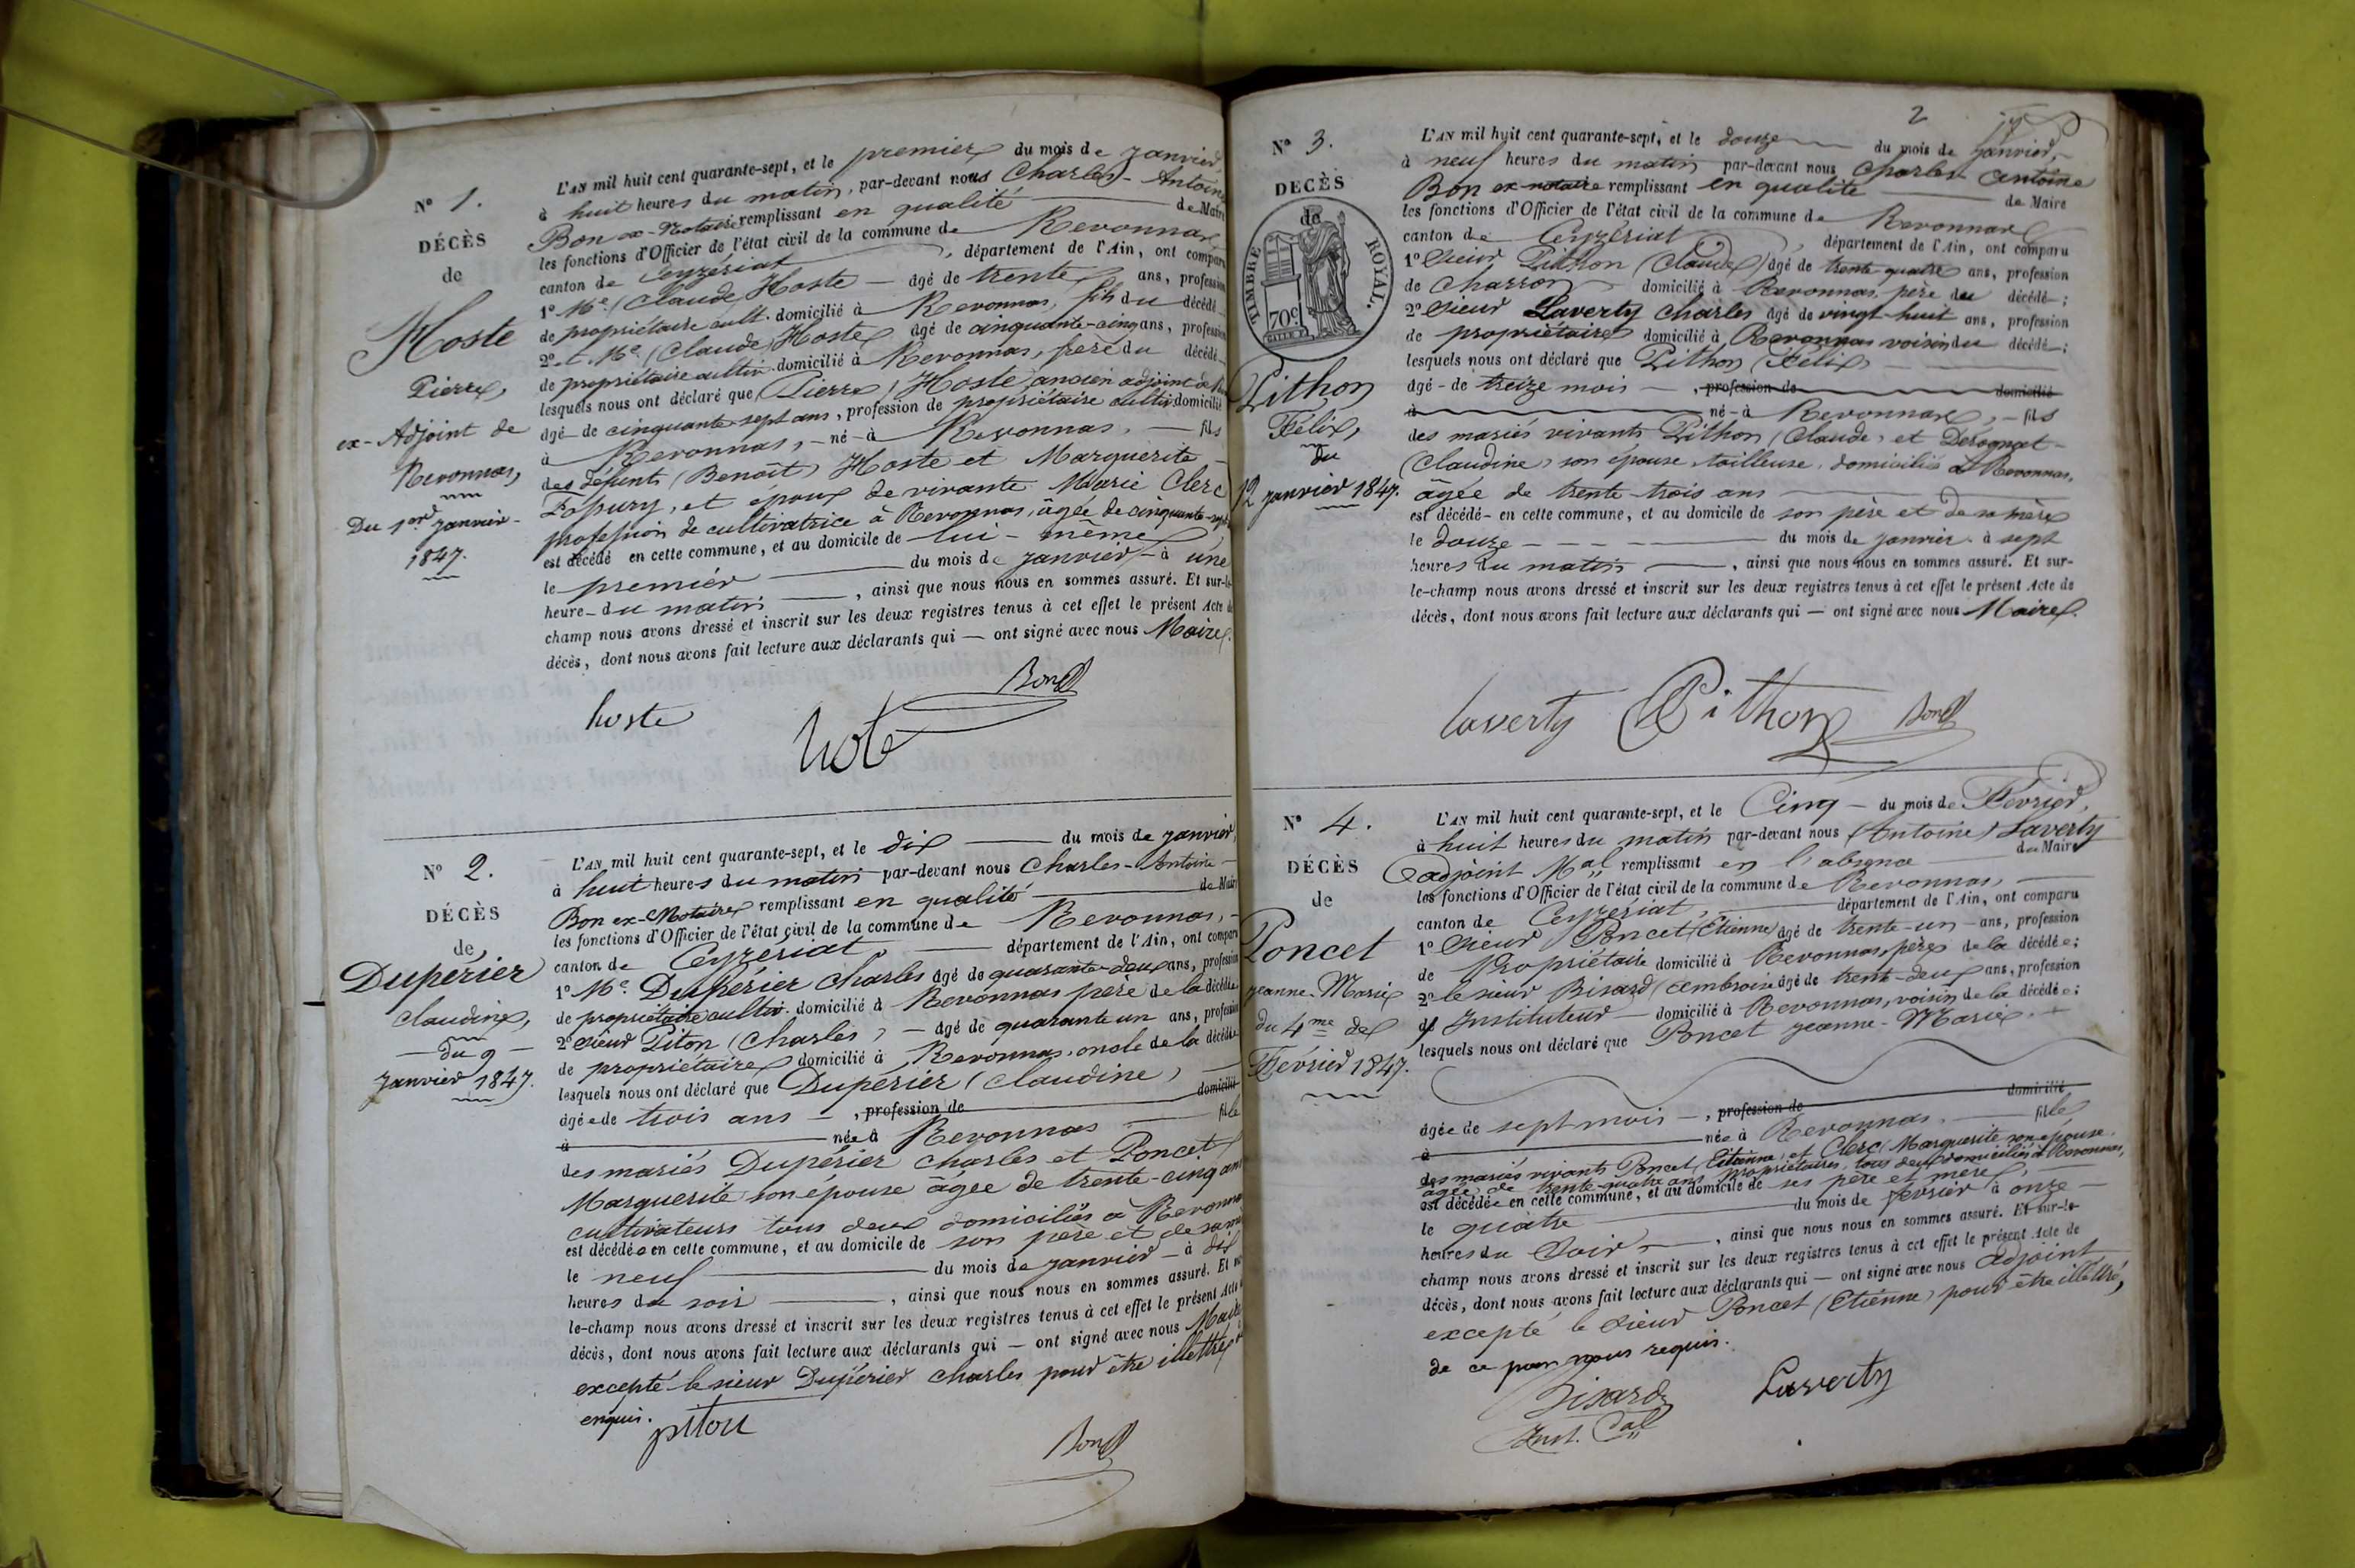 N° 1.
DÉCÈS
de
Hoste
Pierre,
ex-Adjoint de
Revonnas,
Du 1er Janvier
1847.
L'AN mil huit cent quarante-sept, et le premier du mois de Janvier,
à huit heures du matin, par-devant nous Charles-Antoine
Bon ex-Notaire remplissant en qualité de Maire
les fonctions d'Officier de l'état civil de la commune de Revonnas
canton de Ceyzériat, département de l'Ain, ont comparu
1° Me. (Claude) Hoste — âgé de trente ans, profession
de propriétaire cult. domicilié à Revonnas, fils du décédé
2° et Me. (Claude) Hoste âgé de cinquante-cinq ans, profession
de propriétaire cultiv. domicilié à Revonnas, père du décédé
lesquels nous ont déclaré que (Pierre) Hoste ancien adjoint
âgé de cinquante-sept ans, profession de propriétaire cultiv. domicilié
à Revonnas, — né à Revonnas, — fils
des défunts (Benoît) Hoste et Marguerite
et époux de vivante Marie Clerc
profession de cultivatrice à Revonnas, âgée de cinquante-sept
est décédé en cette commune, et au domicile de lui-même
le premier du mois de Janvier — à une
heure du matin —, ainsi que nous nous en sommes assuré. Et sur-le-
champ nous avons dressé et inscrit sur les deux registres tenus à cet effet le présent Acte de
décès, dont nous avons fait lecture aux déclarants qui — ont signé avec nous Maire.
hoste
Bon
N° 2.
DÉCÈS
de
Dupérier
Claudine,
— du 9 —
Janvier 1847.
L'AN mil huit cent quarante-sept, et le dix du mois de Janvier,
à huit heures du matin par-devant nous Charles-Antoine
Bon ex-Notaire remplissant en qualité de Maire
les fonctions d'Officier de l'état civil de la commune de Revonnas,
canton de Ceyzériat, département de l'Ain, ont comparu
1° Me. Dupérier Charles âgé de quarante-deux ans, profession
de propriétaire cultiv. domicilié à Revonnas père de la décédée
2° Sieur Piton (Charles) — âgé de quarante un ans, profession
de propriétaire domicilié à Revonnas, oncle de la décédée
lesquels nous ont déclaré que Dupérier (Claudine)
âgée de trois ans —, profession de domicilié
à née à Revonnas fille
des mariés Dupérier Charles et Poncet
Marguerite son épouse âgée de trente-cinq ans
cultivateurs tous deux domiciliés à Revonnas
est décédée en cette commune, et au domicile de son père et de sa mère
le neuf du mois de Janvier — à dix
heures du soir —, ainsi que nous nous en sommes assuré. Et sur
le-champ nous avons dressé et inscrit sur les deux registres tenus à cet effet le présent Acte de
décès, dont nous avons fait lecture aux déclarants qui — ont signé avec nous Maire
excepté le sieur Dupérier Charles pour être illettré
enquis.
piton
Bon
2
N° 3.
DECÈS
de
TIMBRE ROYAL.
70c
Pithon
Félix,
du
12 Janvier 1847.
L'AN mil huit cent quarante-sept, et le douze du mois de Janvier,
à neuf heures du matin par-devant nous Charles Antoine
Bon ex-notaire remplissant en qualité de Maire
les fonctions d'Officier de l'état civil de la commune de Revonnas
canton de Ceyzériat, département de l'Ain, ont comparu
1° Sieur Pithon (Claude) âgé de trente quatre ans, profession
de Charron domicilié à Revonnas, père du décédé;
2° Sieur Laverty Charles âgé de vingt-huit ans, profession
de propriétaire domicilié à Revonnas voisin du décédé;
lesquels nous ont déclaré que Pithon (Félix)
âgé de treize mois —, profession de domicilié
à né à Revonnas, — fils
des mariés vivants Pithon (Claude) et Derognat
(Claudine) son épouse, tailleuse, domiciliés à Revonnas,
âgée de trente-trois ans
est décédé en cette commune, et au domicile de son père et de sa mère
le douze du mois de Janvier à sept
heures du matin —, ainsi que nous nous en sommes assuré. Et sur-
le-champ nous avons dressé et inscrit sur les deux registres tenus à cet effet le présent Acte de
décès, dont nous avons fait lecture aux déclarants qui — ont signé avec nous Maire.
laverty Pithon Bon
N° 4.
DÉCÈS
de
Poncet
Jeanne-Marie
du 4me de
Février 1847.
L'AN mil huit cent quarante-sept, et le Cinq — du mois de Février,
à huit heures du matin par-devant nous (Antoine) Laverty
adjoint Mal remplissant en l'absence du Maire
les fonctions d'Officier de l'état civil de la commune de Revonnas,
canton de Ceyzériat, département de l'Ain, ont comparu
1° Sieur Poncet (Etienne) âgé de trente-un ans, profession
de Propriétaire domicilié à Revonnas, père de la décédée;
2° le sieur Bisard (Ambroise) âgé de trente-deux ans, profession
d'Instituteur — domicilié à Revonnas, voisin de la décédée;
lesquels nous ont déclaré que Poncet Jeanne-Marie.
âgée de sept mois —, profession de domicilié
à née à Revonnas. fille
des mariés vivants Poncet (Etienne) et Clerc (Marguerite) son épouse.
âgée de trente-quatre ans propriétaires, tous deux domiciliés à Revonnas,
est décédée en cette commune, et au domicile de ses père et mère,
le quatre du mois de février à onze
heures du Soir —, ainsi que nous nous en sommes assuré. Et sur-le-
champ nous avons dressé et inscrit sur les deux registres tenus à cet effet le présent Acte de
décès, dont nous avons fait lecture aux déclarants qui — ont signé avec nous adjoint
excepté le Sieur Poncet (Etienne) pour être illettré,
de ce par nous requis.
Bisard Laverty
Inst.